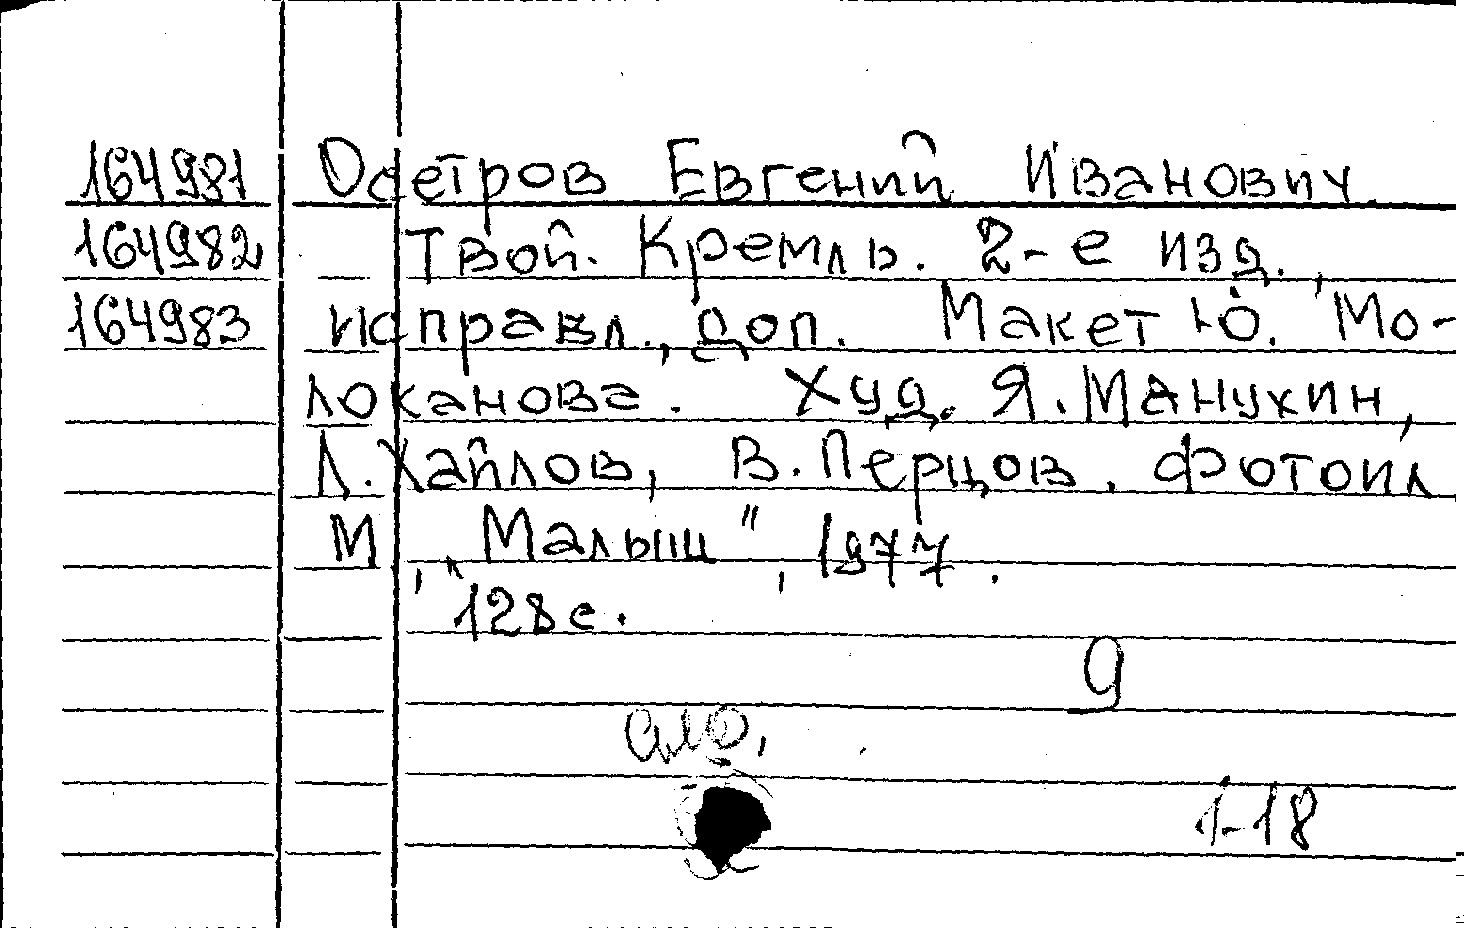 164981 Осетров Евгений Иванович.
164982 Твой Кремль. 2-е изд.,
164983 исправл., доп. Макет Ю. Мо-
локанова. Худ. Я. Манухин,
Л. Хайлов, В. Перцов. Фотоил
М., „Малыш", 1977.
128 с.
9
1-18